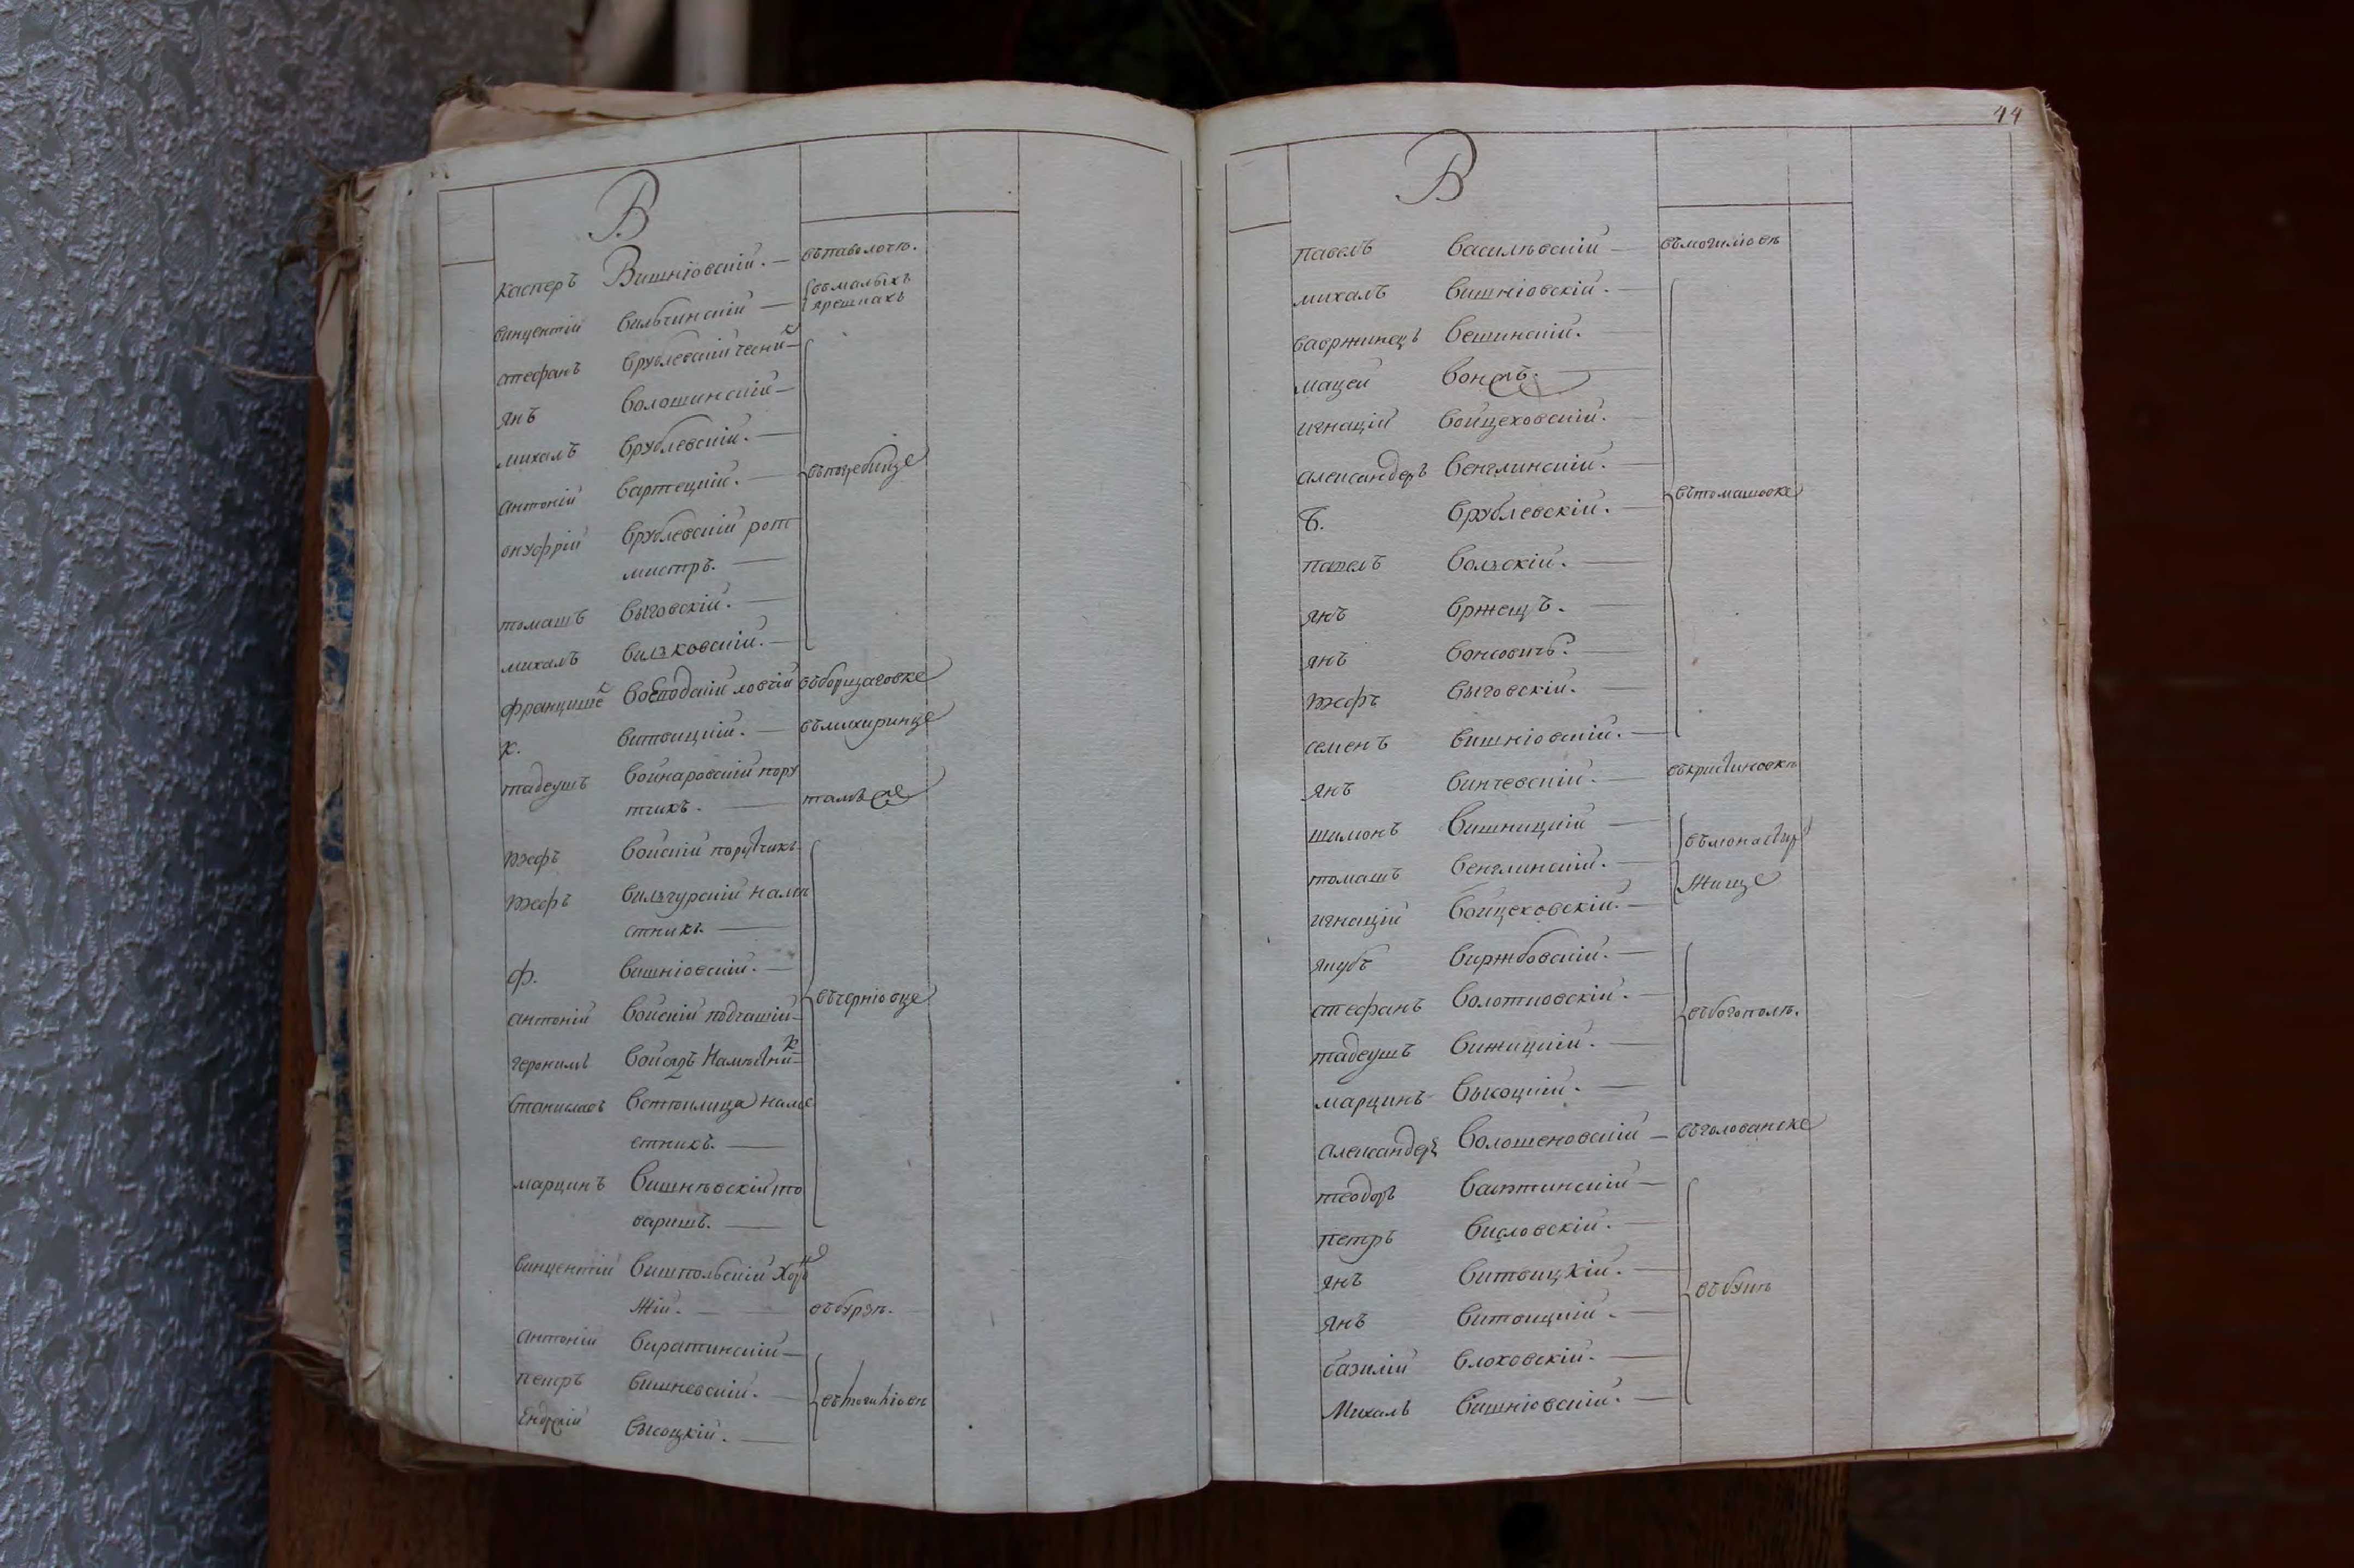 В
Касперъ Вишнiовскiй. — въ паволоче.
винцентiй вильчинскiй — въ малыхъ
ярешкахъ
стефанъ врублевскiй чесникъ
янъ волошинскiй —
михалъ врублевскiй. —
антонiй вартецкiй. — въ погребище
онуфрiй врублевскiй рот
мистръ. —
томашъ выговскiй. —
михалъ вилзковскiй. —
францишекъ ловчiй въ борщаговке
К. витвицкiй. —
тадеушъ войнаровскiй пору
тчикъ. — тамъ же
Iозефъ войскiй порутчикъ
Iозефъ вильгурскiй наме
стникъ. —
ф. вишнiовскiй. —
антонiй войскiй подчашiй — въ чернiовце
геронимъ Наместникъ
Станиславъ наме
стникъ. —
марцинъ вишневскiй то
варишъ. —
винцентiй вишпольскiй Хорун
жiй. — въ бурзе.
антонiй виратинскiй —
петръ вишневскiй. — въ могилiове
Ендржiй высоцкiй. —
44
В
павелъ василевскiй — въ могилiове
михалъ вишнiовскiй. —
вавржинецъ вешинскiй. —
мацей вонжъ. —
игнацiй войцеховскiй.
александеръ венглинскiй. —
Б. врублевскiй. — въ томашовке
павелъ вольскiй. —
янъ вржещъ. —
янъ вонсовичъ. —
Iозефъ выговскiй. —
семенъ вишнiовскiй. —
янъ винчевскiй. — въ христиновке
шимонъ вишницкiй — въ монастыр
томашъ венглинскiй. —
жище
игнацiй войцеховскiй. —
якубъ виржбовскiй. —
стефанъ волотковскiй. — въ богополе.
тадеушъ вижицкiй. —
марцинъ высоцкiй. —
александеръ волошеновскiй — въ голованске
теодоръ —
петръ висловскiй. —
янъ витвицкiй. — въ буке
янъ витвицкiй. —
базилiй влоховскiй. —
Михалъ вишнiовскiй. —